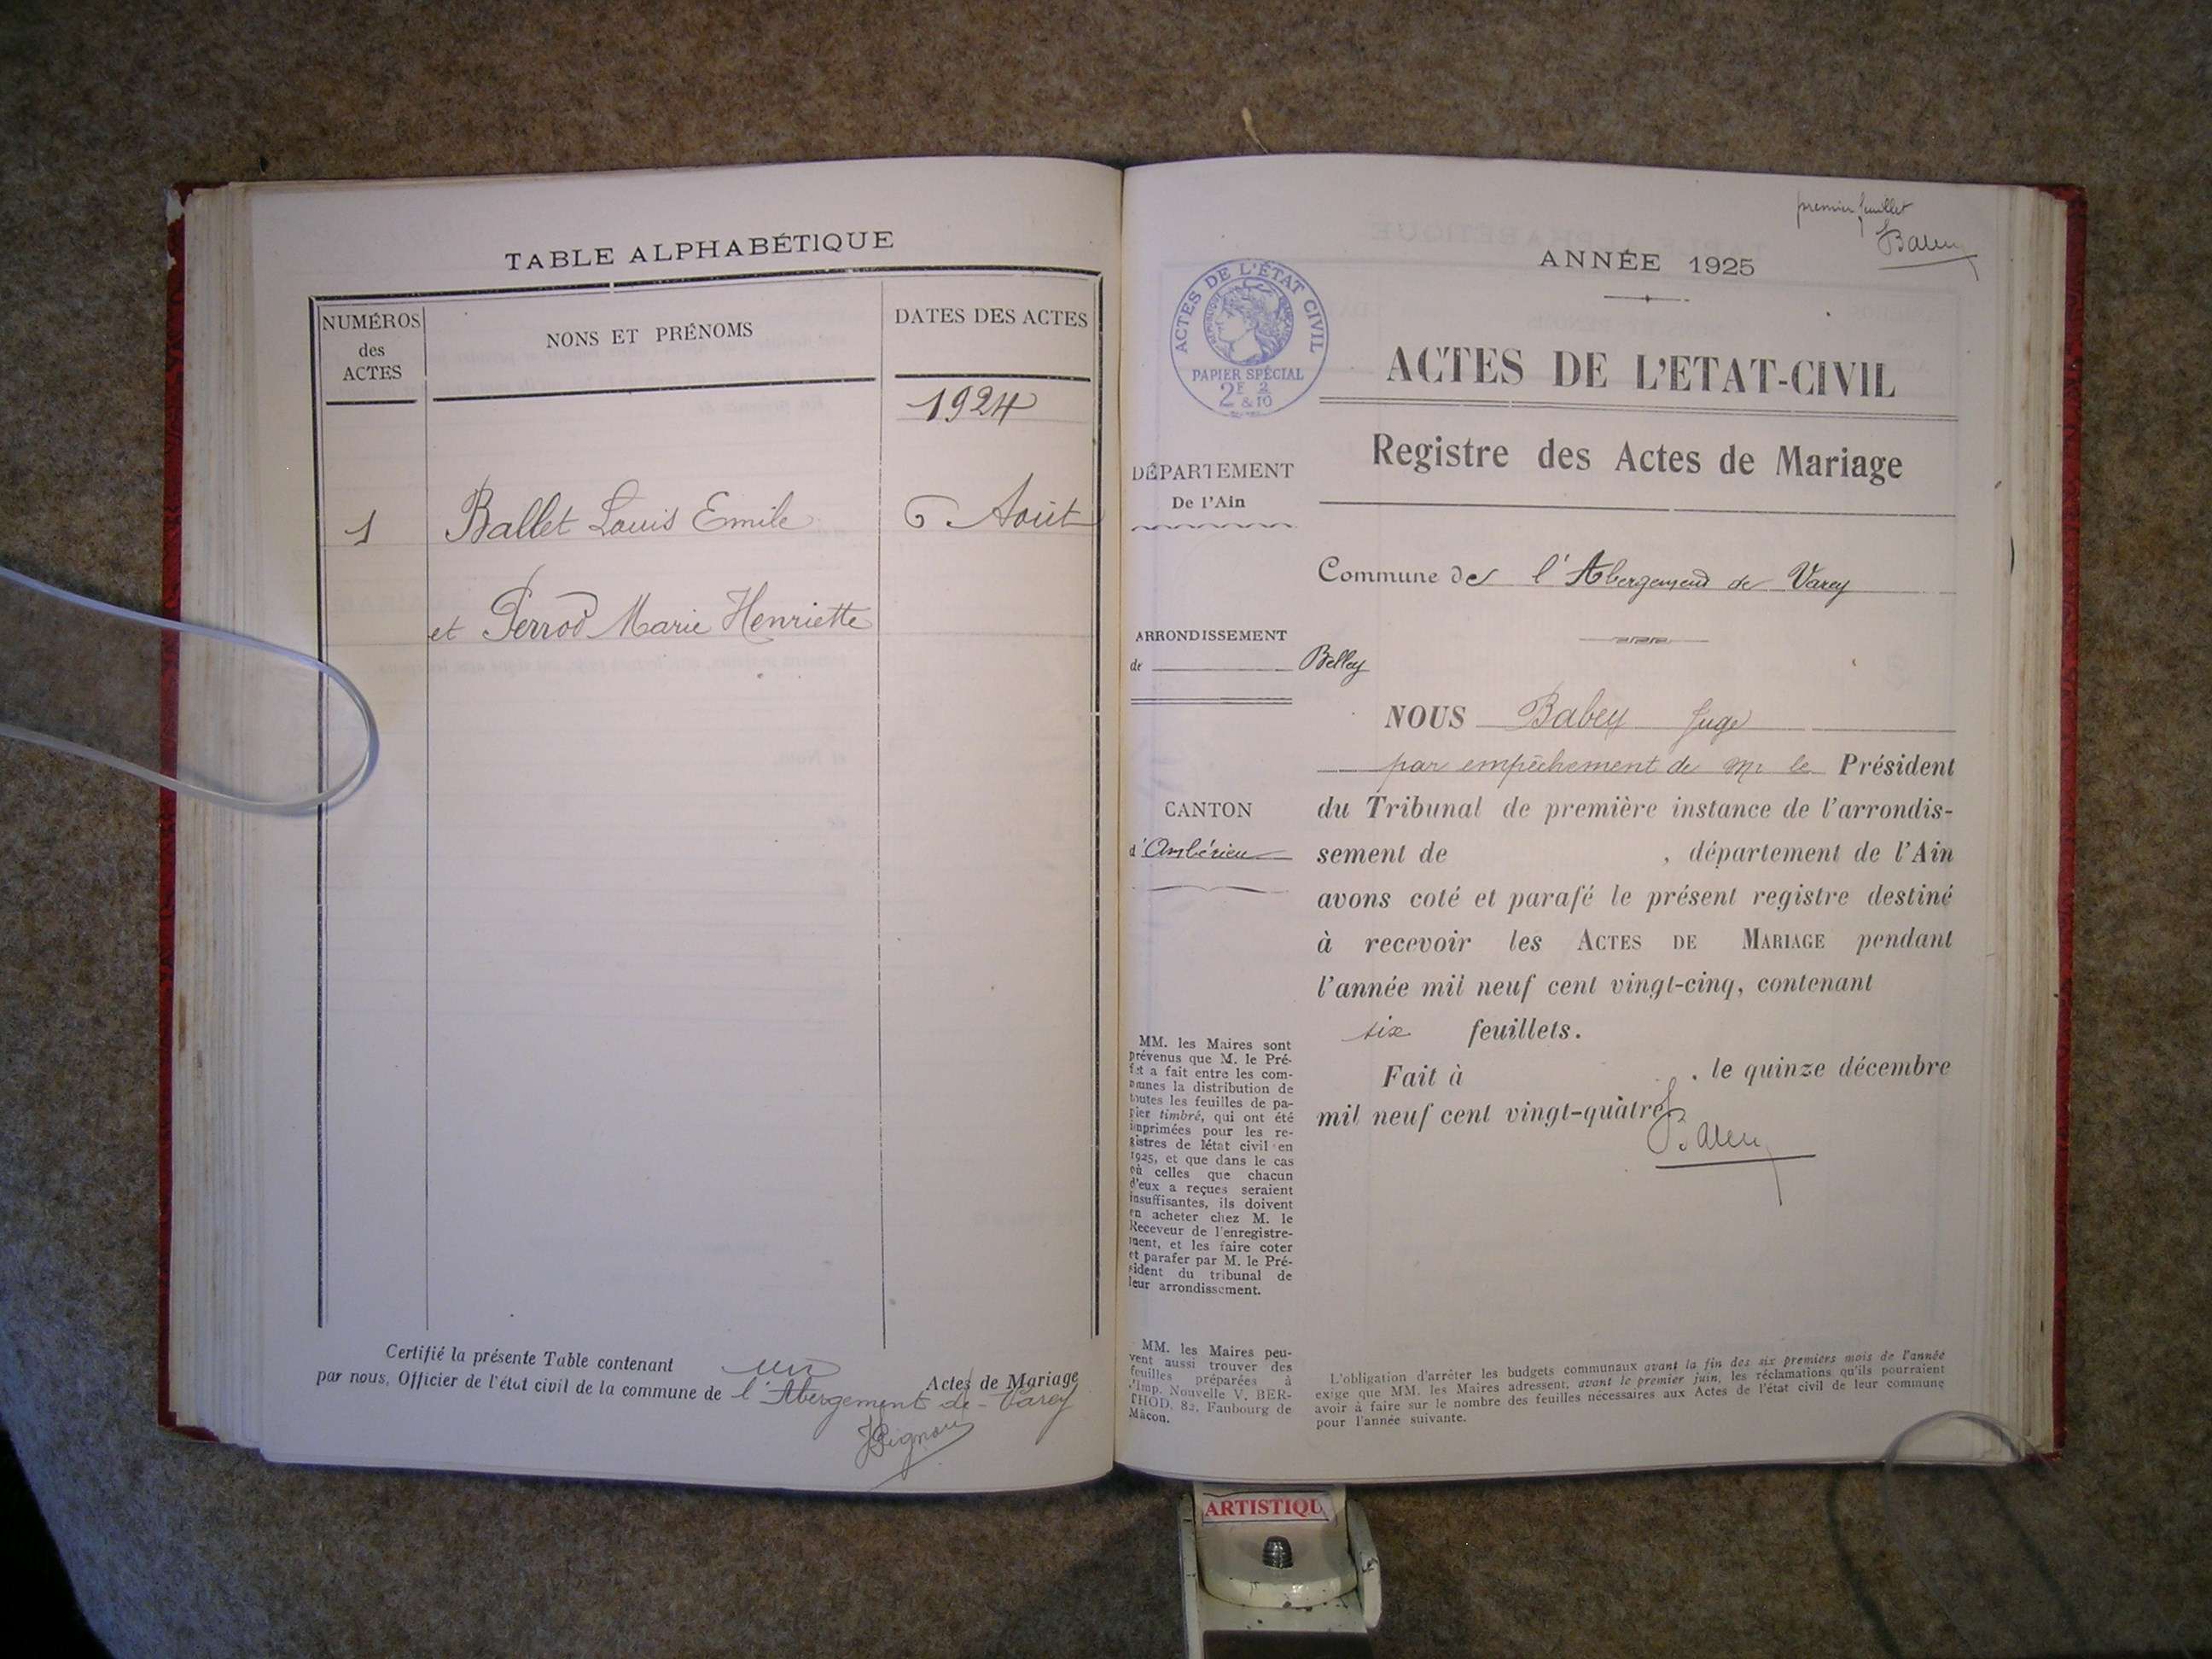 TABLE ALPHABÉTIQUE
NUMÉROS
des
ACTES
NONS ET PRÉNOMS
DATES DES ACTES
1924
1 Ballet Louis Emile 6 Août
et Perrod Marie Henriette
Certifié la présente Table contenant un Actes de Mariage
par nous, Officier de l'état civil de la commune de l'Abergement-de-Varey
premier feuillet
ANNÉE 1925
ACTES DE L'ÉTAT CIVIL
RÉPUBLIQUE FRANÇAISE
PAPIER SPÉCIAL
2F 2
& 10
ACTES DE L'ETAT-CIVIL
Registre des Actes de Mariage
DÉPARTEMENT
De l'Ain
Commune de l'Abergement de Varey
ARRONDISSEMENT
de Belley
CANTON
d'Ambérieu
NOUS Babey Juge
par empêchement de Mr le Président
du Tribunal de première instance de l'arrondis-
sement de , département de l'Ain
avons coté et parafé le présent registre destiné
à recevoir les ACTES DE MARIAGE pendant
l'année mil neuf cent vingt-cinq, contenant
six feuillets.
Fait à , le quinze décembre
mil neuf cent vingt-quatre
MM. les Maires sont
prévenus que M. le Pré-
fet a fait entre les com-
munes la distribution de
toutes les feuilles de pa-
pier timbré, qui ont été
imprimées pour les re-
gistres de létat civil en
1925, et que dans le cas
où celles que chacun
d'eux a reçues seraient
insuffisantes, ils doivent
en acheter chez M. le
Receveur de l'enregistre-
ment, et les faire coter
et parafer par M. le Pré-
sident du tribunal de
leur arrondissement.
MM. les Maires peu-
vent aussi trouver des
feuilles préparées à
l'Imp. Nouvelle V. BER-
THOD, 82, Faubourg de
Mâcon.
L'obligation d'arrêter les budgets communaux avant la fin des six premiers mois de l'année
exige que MM. les Maires adressent, avant le premier juin, les réclamations qu'ils pourraient
avoir à faire sur le nombre des feuilles nécessaires aux Actes de l'état civil de leur commune
pour l'année suivante.
ARTISTIQU